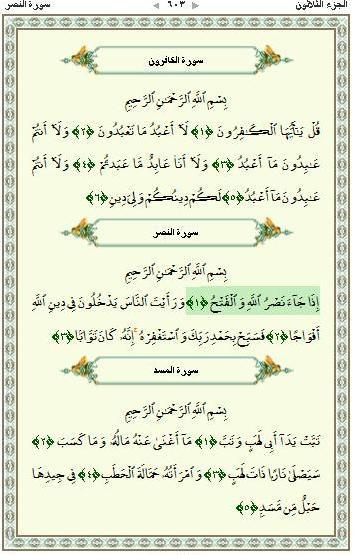 الجزء الثلاثون ٦٠٣ سورة النصر
سورة الكافرون
بِسْمِ اللَّهِ الرَّحْمَٰنِ الرَّحِيمِ
قُلْ يَٰٓأَيُّهَا ٱلْكَٰفِرُونَ ﴿١﴾ لَآ أَعْبُدُ مَا تَعْبُدُونَ ﴿٢﴾ وَلَآ أَنتُمْ
عَٰبِدُونَ مَآ أَعْبُدُ ﴿٣﴾ وَلَآ أَنَا۠ عَابِدٌ مَّا عَبَدتُّمْ ﴿٤﴾ وَلَآ أَنتُمْ
عَٰبِدُونَ مَآ أَعْبُدُ ﴿٥﴾ لَكُمْ دِينُكُمْ وَلِىَ دِينِ ﴿٦﴾
سورة النصر
بِسْمِ اللَّهِ الرَّحْمَٰنِ الرَّحِيمِ
إِذَا جَآءَ نَصْرُ ٱللَّهِ وَٱلْفَتْحُ ﴿١﴾ وَرَأَيْتَ ٱلنَّاسَ يَدْخُلُونَ فِى دِينِ ٱللَّهِ
أَفْوَاجًا ﴿٢﴾ فَسَبِّحْ بِحَمْدِ رَبِّكَ وَٱسْتَغْفِرْهُ ۚ إِنَّهُۥ كَانَ تَوَّابًۢا ﴿٣﴾
سورة المسد
بِسْمِ اللَّهِ الرَّحْمَٰنِ الرَّحِيمِ
تَبَّتْ يَدَآ أَبِى لَهَبٍ وَتَبَّ ﴿١﴾ مَآ أَغْنَىٰ عَنْهُ مَالُهُۥ وَمَا كَسَبَ ﴿٢﴾
سَيَصْلَىٰ نَارًا ذَاتَ لَهَبٍ ﴿٣﴾ وَٱمْرَأَتُهُۥ حَمَّالَةَ ٱلْحَطَبِ ﴿٤﴾ فِى جِيدِهَا
حَبْلٌ مِّن مَّسَدٍۭ ﴿٥﴾